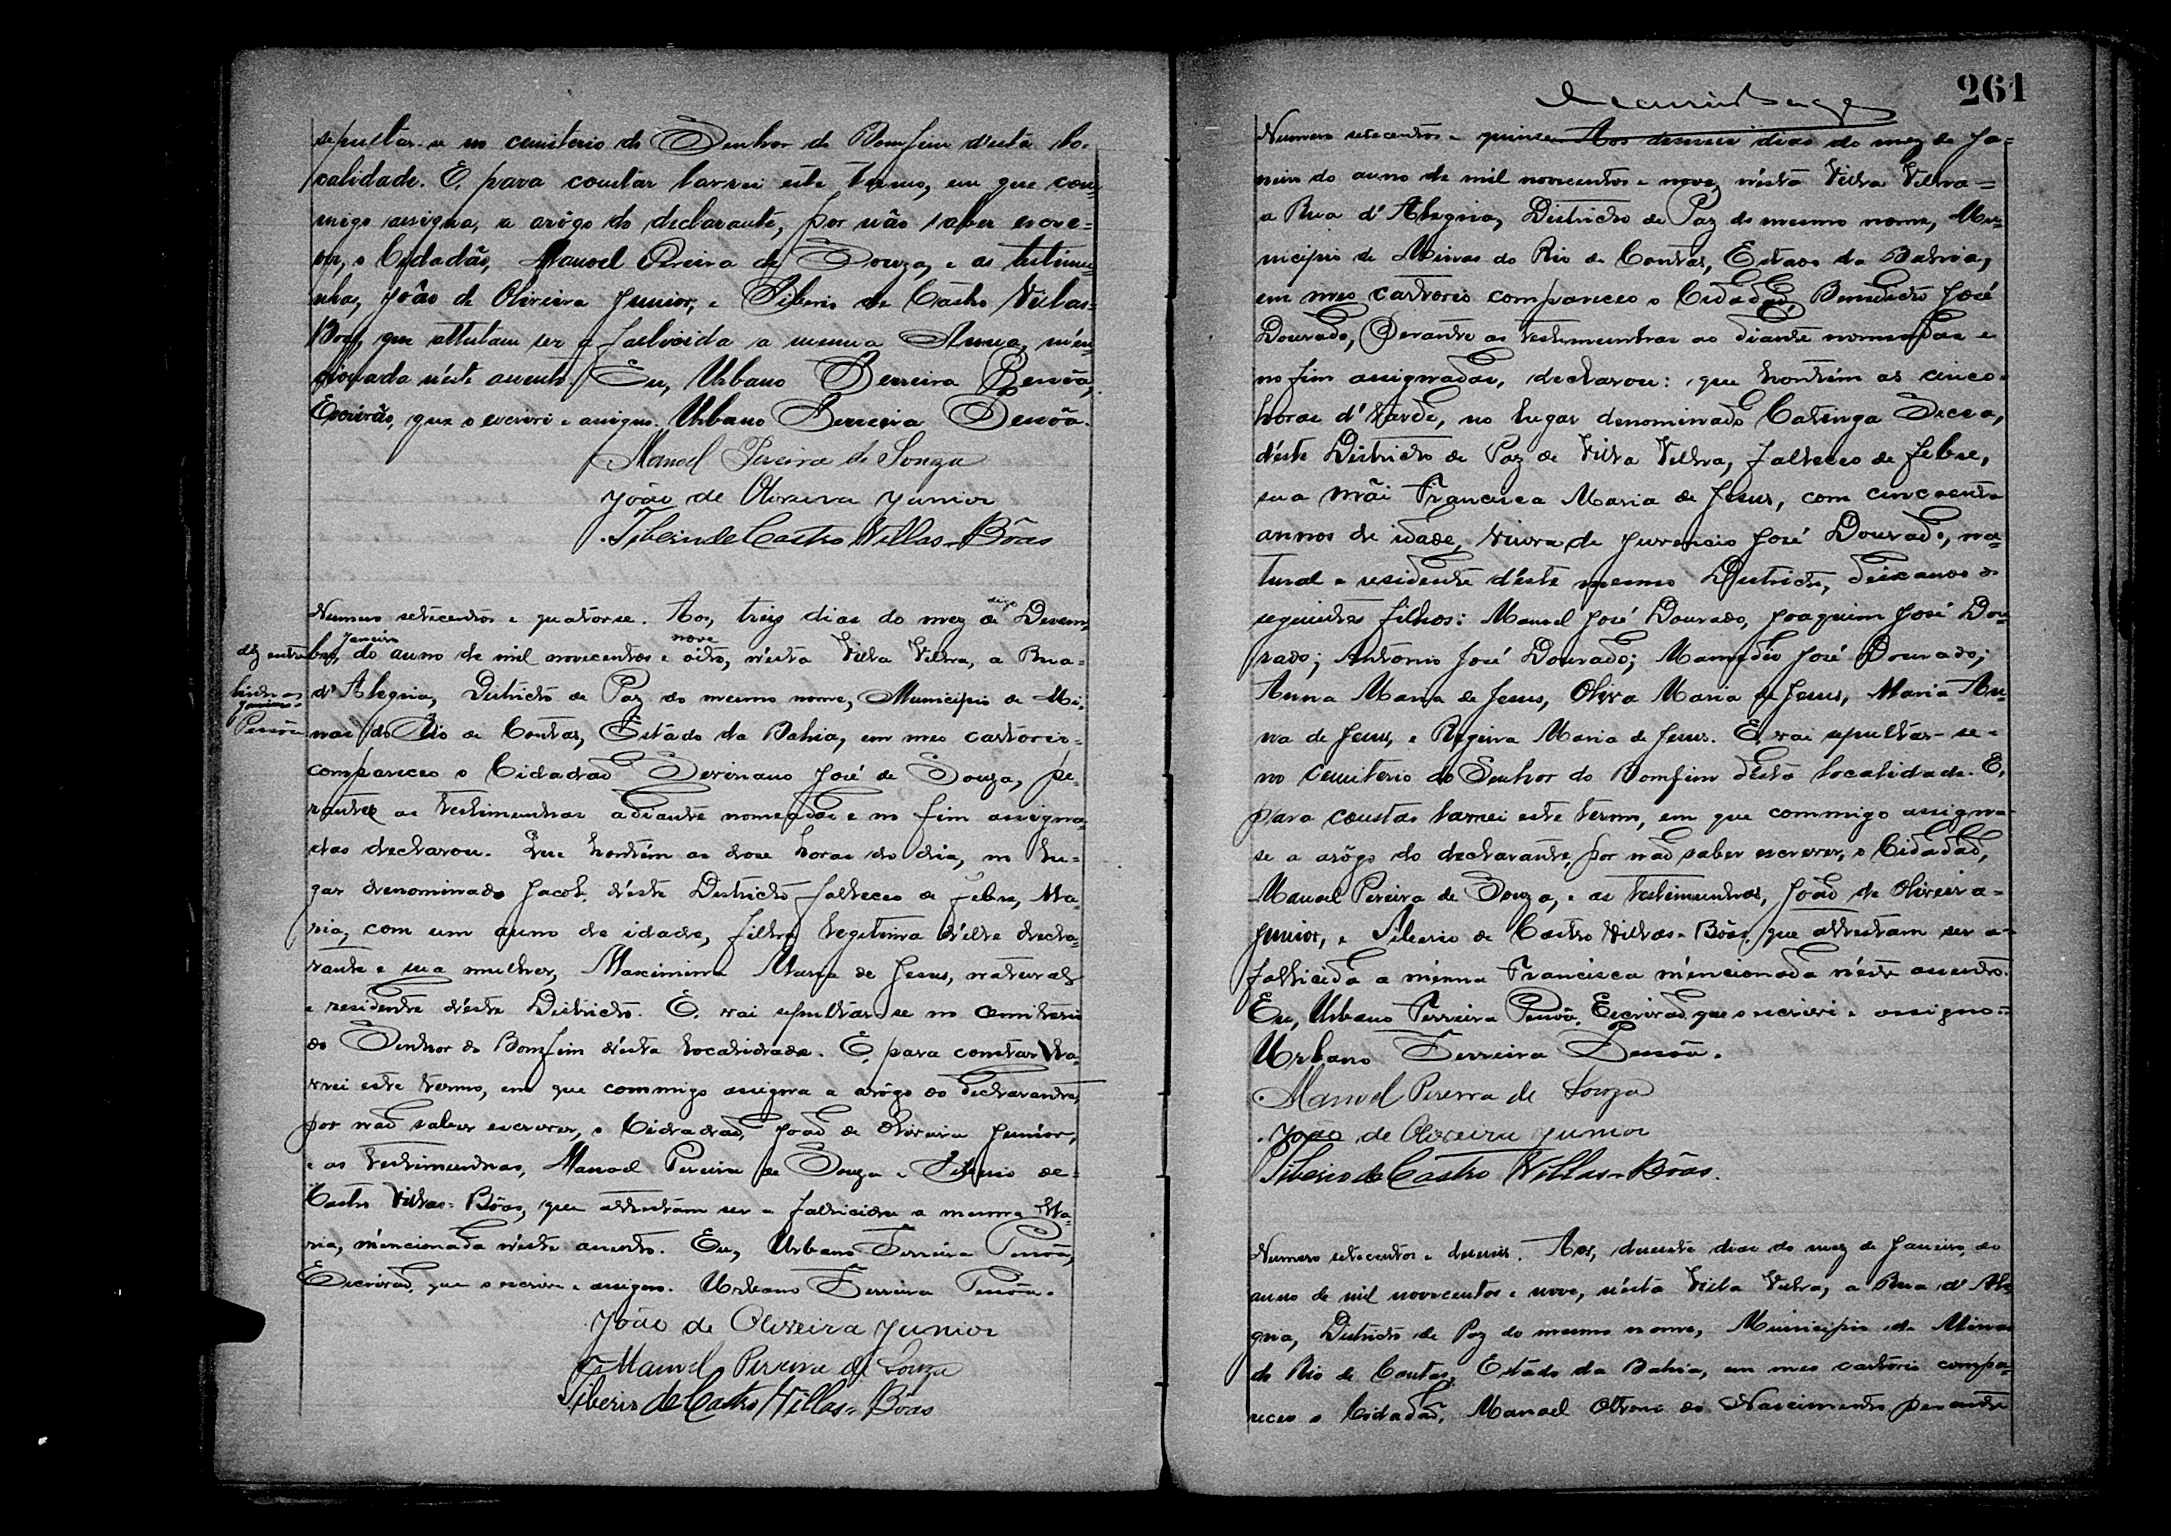 sepultar-se no cemiterio do Senhor do Bomfim d'esta lo-
calidade. E, para constar lavrei este termo, em que com-
migo assigna, a arôgo do declarante, por não saber escre-
ver, o Cidadão, Manoel Pereira de Souza, e as testimu-
nhas, João de Oliveira Junior, e Tiberio de Castro Villas-
Bôas, que attestam ser a fallicida a mesma Anna, men-
cionada n'este acento. Eu, Urbano Ferreira Pessôa,
Escrivão, que o escrivi e assigno. Urbano Ferreira Pessôa.
Manoel Pereira de Souza
João de Oliveira Junior
Tiberio de Castro Villas-Bôas
Numero setecentos e quatorse. Aos, treis dias do mez de Desem-
digo
bro, do anno de mil novecentos e oito, n'esta Villa Velha, a Rua-
Janeiro nove
d'Alegria, Districto de Paz do mesmo nome, Municipio de Mi-
linhas
Janeiro
Pessôa
nas do Rio de Contas, Estado da Bahia, em meo cartorio-
compareceo o Cidadão Severiano José de Souza, pe-
rante as testimunhas adiante nomeadas e no fim assigna-
das declarou. Que hontem as dose horas do dia, no lu-
gar denominado Jacob, d'este Districto falleceo de febre, Ma-
ria, com um anno de idade, filha legitima d'elle decla-
rante e sua mulher, Maximina Maria de Jesus, naturaes
e residente d'este Districto. E, vai sepultar se no Cemiterio
do Senhor do Bomfim d'esta localidade. E, para constar la-
vrei este termo, em que commigo assigna a arôgo do declarante,
por não saber escrever, o Cidadão, João de Oliveira Junior,
e as testimunhas, Manoel Pereira de Souza e Tiberio de-
Castro Villas-Bôas, que attestam ser a fallicida a mesma Ma-
ria, mencionada n'este acento. Eu, Urbano Ferreira Pessôa,
Escrivão, que o escrivi e assigno. Urbano Ferreira Pessôa.
João de Oliveira Junior
Manoel Pereira de Souza
Tiberio de Castro Villas-Bôas
261
Numero setecentos e quinse Aos deseseis dias do mez de Ja-
neiro do anno de mil novecentos e nove, n'esta Villa Velha-
a Rua d'Alegria, Districto de Paz do mesmo nome, Mu-
nicipio de Minas do Rio de Contas, Estado da Bahia,
em meo cartorio compareceo o Cidadão, Benedicto José
Dourado, Perante as testimunhas ao diante nomeadas e
no fim assignadas, declarou: que hontem as cinco
horas d'tarde, no lugar denominado Catinga Secca,
d'este Districto de Paz de Villa Velha, falleceo de febre,
sua mãi Francisca Maria de Jesus, com cincoenta
annos de idade, viuva de Juvencio José Dourado, na-
tural e residente d'este mesmo Districto, deixando os
seguintes filhos: Manoel José Dourado, Joaquim José Dou-
rado; Antonio José Dourado; Mamedio José Dourado;
Anna Maria de Jesus, Oliva Maria de Jesus, Maria An-
na de Jesus, e Regina Maria de Jesus. E, vai sepultar-se-
no cemiterio do Senhor do Bomfim d'esta localidade. E,
para constar lavrei este termo, em que commigo assigna-
se a arôgo do declarante, por não saber escrever, o Cidadão,
Manoel Pereira de Souza, e as testimunhas, João de Oliveira-
Junior, e Tiberio de Castro Villas-Bôas, que attestam ser a-
fallicida a mesma Francisca mencionada n'este acento.
Eu, Urbano Ferreira Pessôa, Escrivão, que o escrivi e assigno=
Urbano Ferreira Pessôa.
Manoel Pereira de Souza
João de Oliveira Junior
Tiberio de Castro Villas-Bôas.
Numero setecentos e deseseis. Aos, desesete dias do mez de Janeiro, do
anno de mil novecentos e nove, n'esta Villa Velha, a Rua d'Ale-
gria, Districto de Paz do mesmo nome, Municipio de Minas
do Rio de Contas, Estado da Bahia, em meo cartorio compa-
receo o Cidadão, Manoel do Nascimento, perante